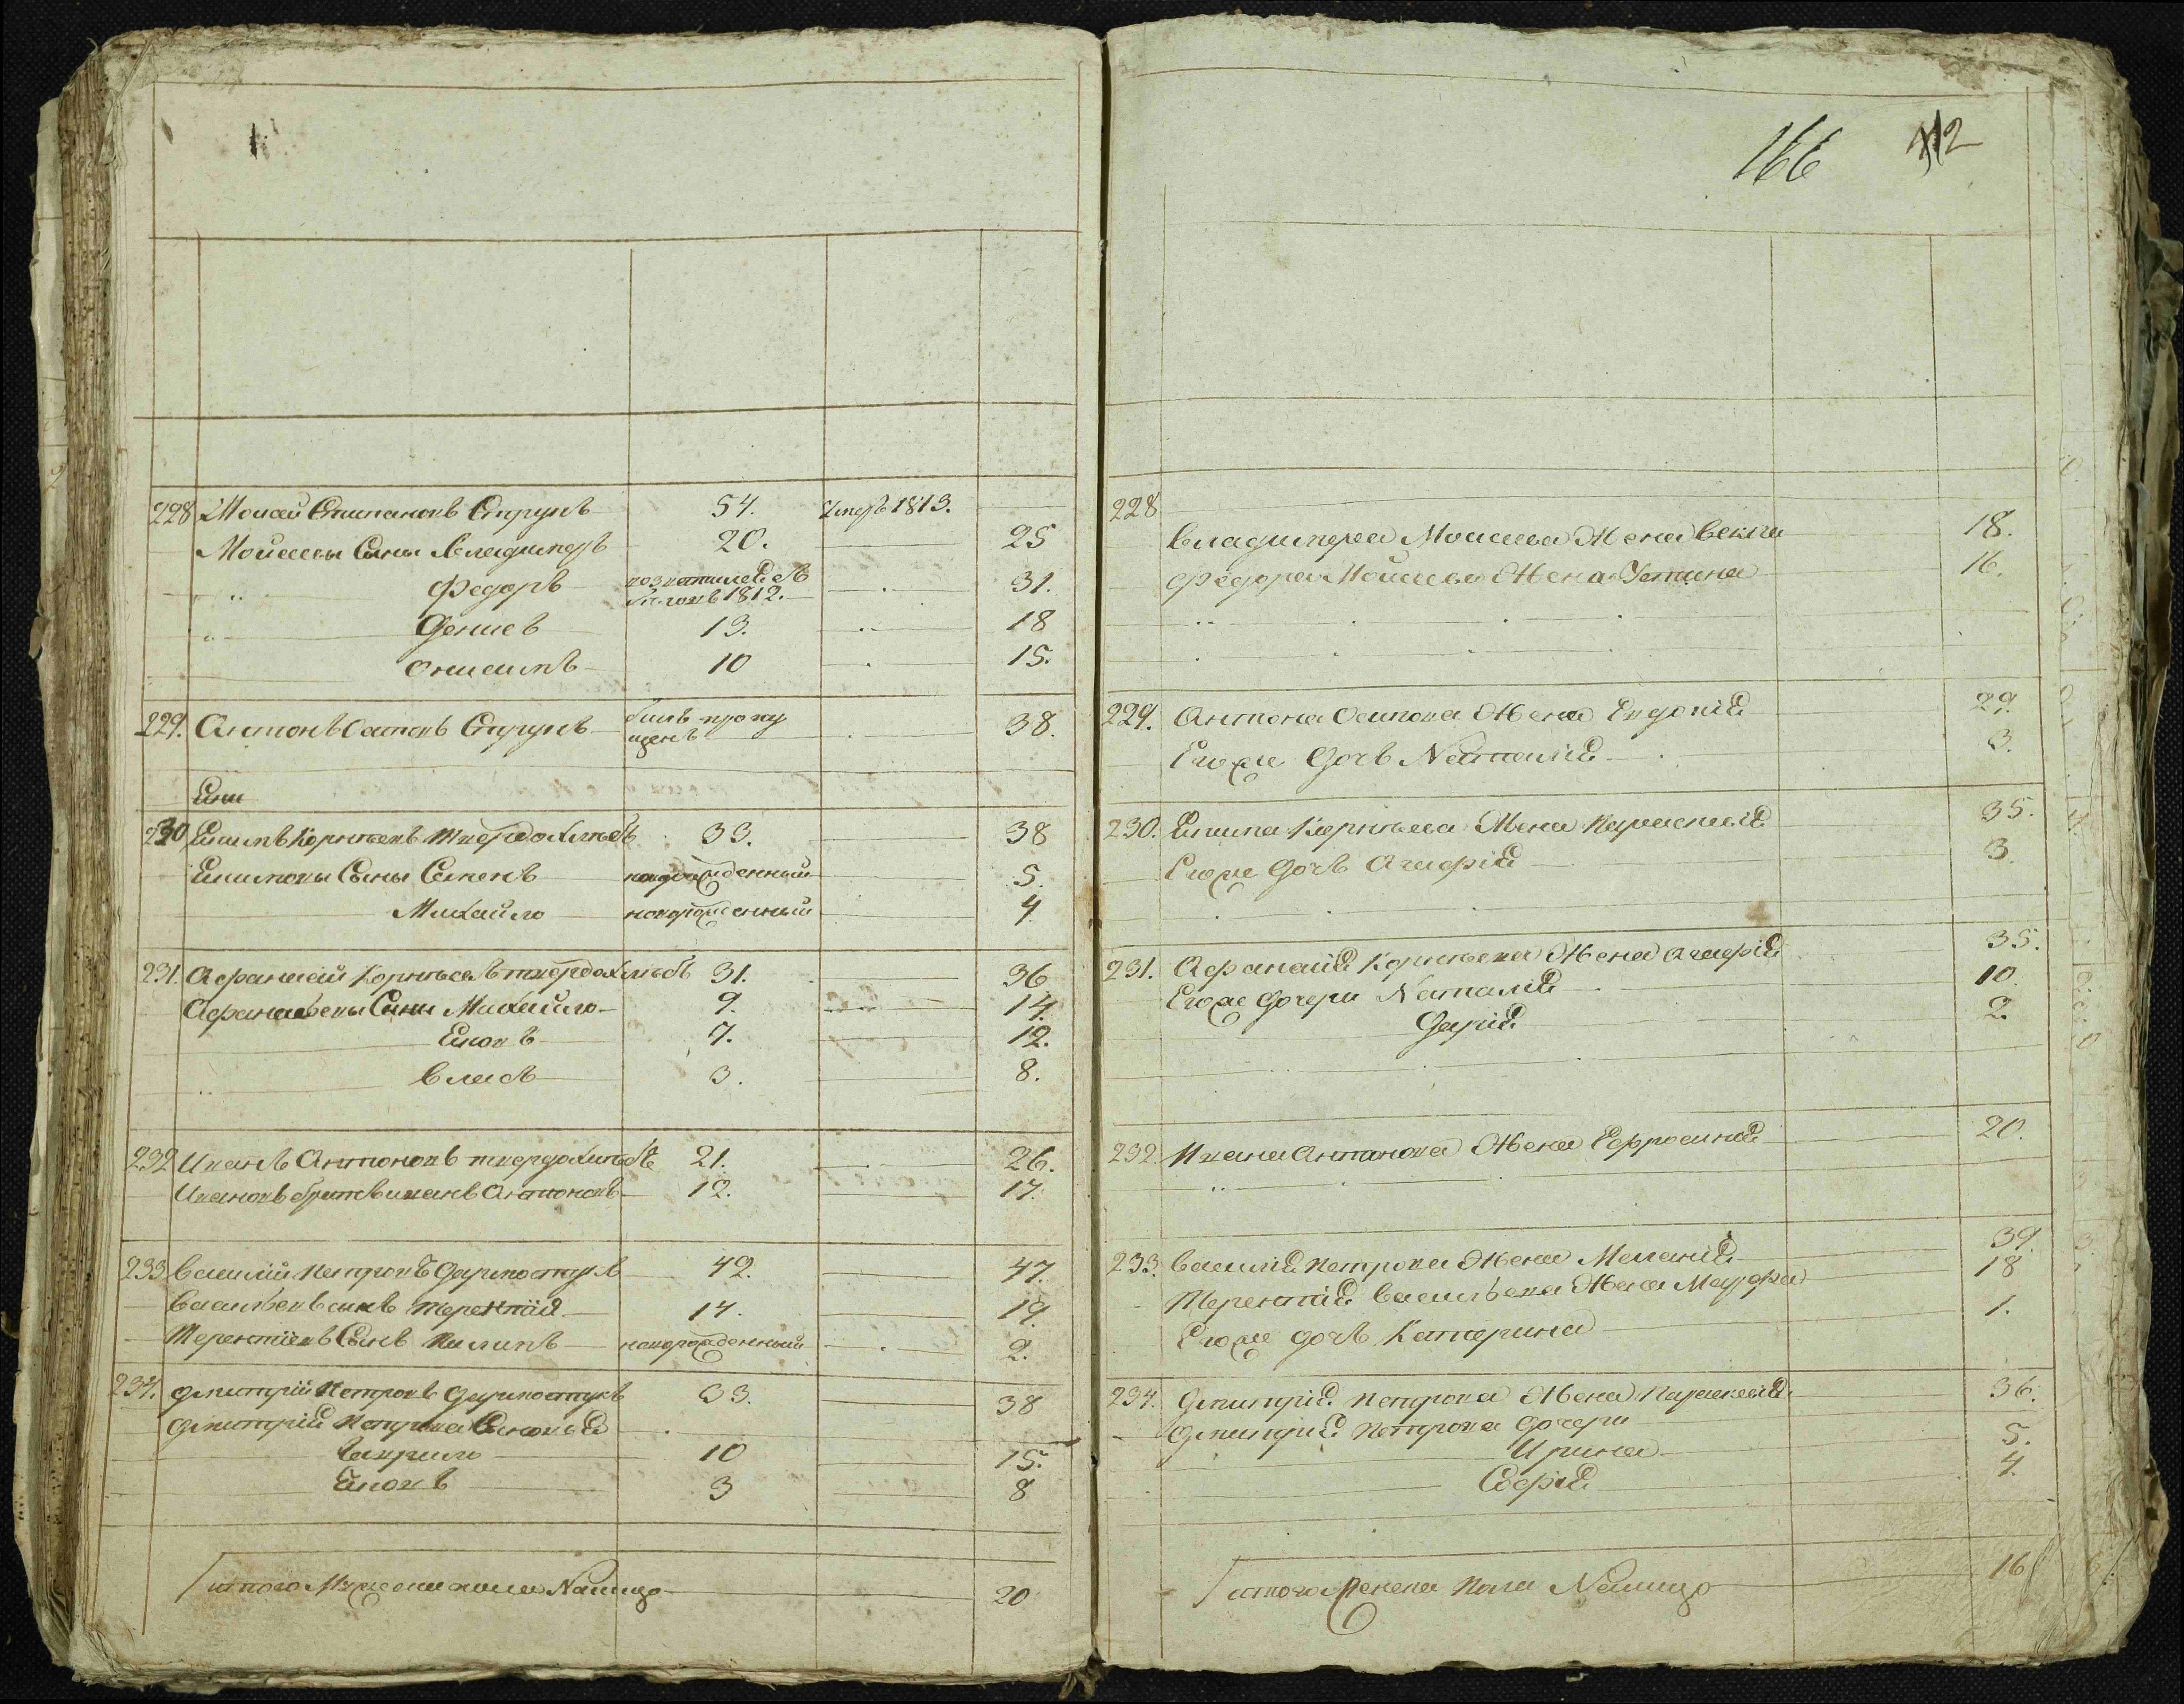 228 Моисей Степановъ Струкъ 54. умеръ 1813.
Мойсеевы Сыны Владимеръ 20. 25
Федоръ 31.
былъ въ 1812.
Денисъ 13. 18
Онисимъ 10 15.
229. Антонъ Осиповъ Струкъ былъ пропу 38.
щенъ
230 Екимъ Корнѣевъ твердохлѣбъ 33. 38
Екимовы Сыны Семенъ новорожденный 5.
Михайло новорожденный 4
231. Афанасий Корнѣевъ твердохлѣбъ 31. 36
Афанасьевы Сыны Михайло 9. 14.
7. 12.
Власъ 3. 8.
232 Иванъ Антоновъ твердохлѣбъ 21. 26.
Ивановъ братъ иванъ Антоновъ 12. 17.
233 Василий Петровъ 42. 47.
Васильевъ сынъ терентий 14. 19.
Терентиевъ Сынъ Пилипъ новорожденный 2.
234. дмитрий Петровъ 33. 38
дмитрия Петрова Сыновья
Гаврило 10 15.
3 8
итого Мужеска пола Налицо 20
166 112
228
Владимера Моисеева Жена Векла 18.
Федора Мойсеева Жена Устина 16.
229. Антона Осипова Жена Евдокия 29.
Егоже Дочь Наталия 3.
230. Екима Корнѣева Жена Параскевия 35.
Егоже Дочь Агафия 3.
231. Афанасия Корнѣева Жена Агафия 35.
Егоже Дочери Наталия 10.
Дария 2.
232. Ивана Антонова Жена Ефросиния 20.
233. Василия Петрова Жена Мелания 39.
Терентия Васильева Жена Марфа 18
Егоже дочь Катерина 1.
234. Дмитрия Петрова Жена Параскевия 36.
Дмитрия Петрова дочери
Ирина 5.
София 4.
итого Женска Пола Налицо 16